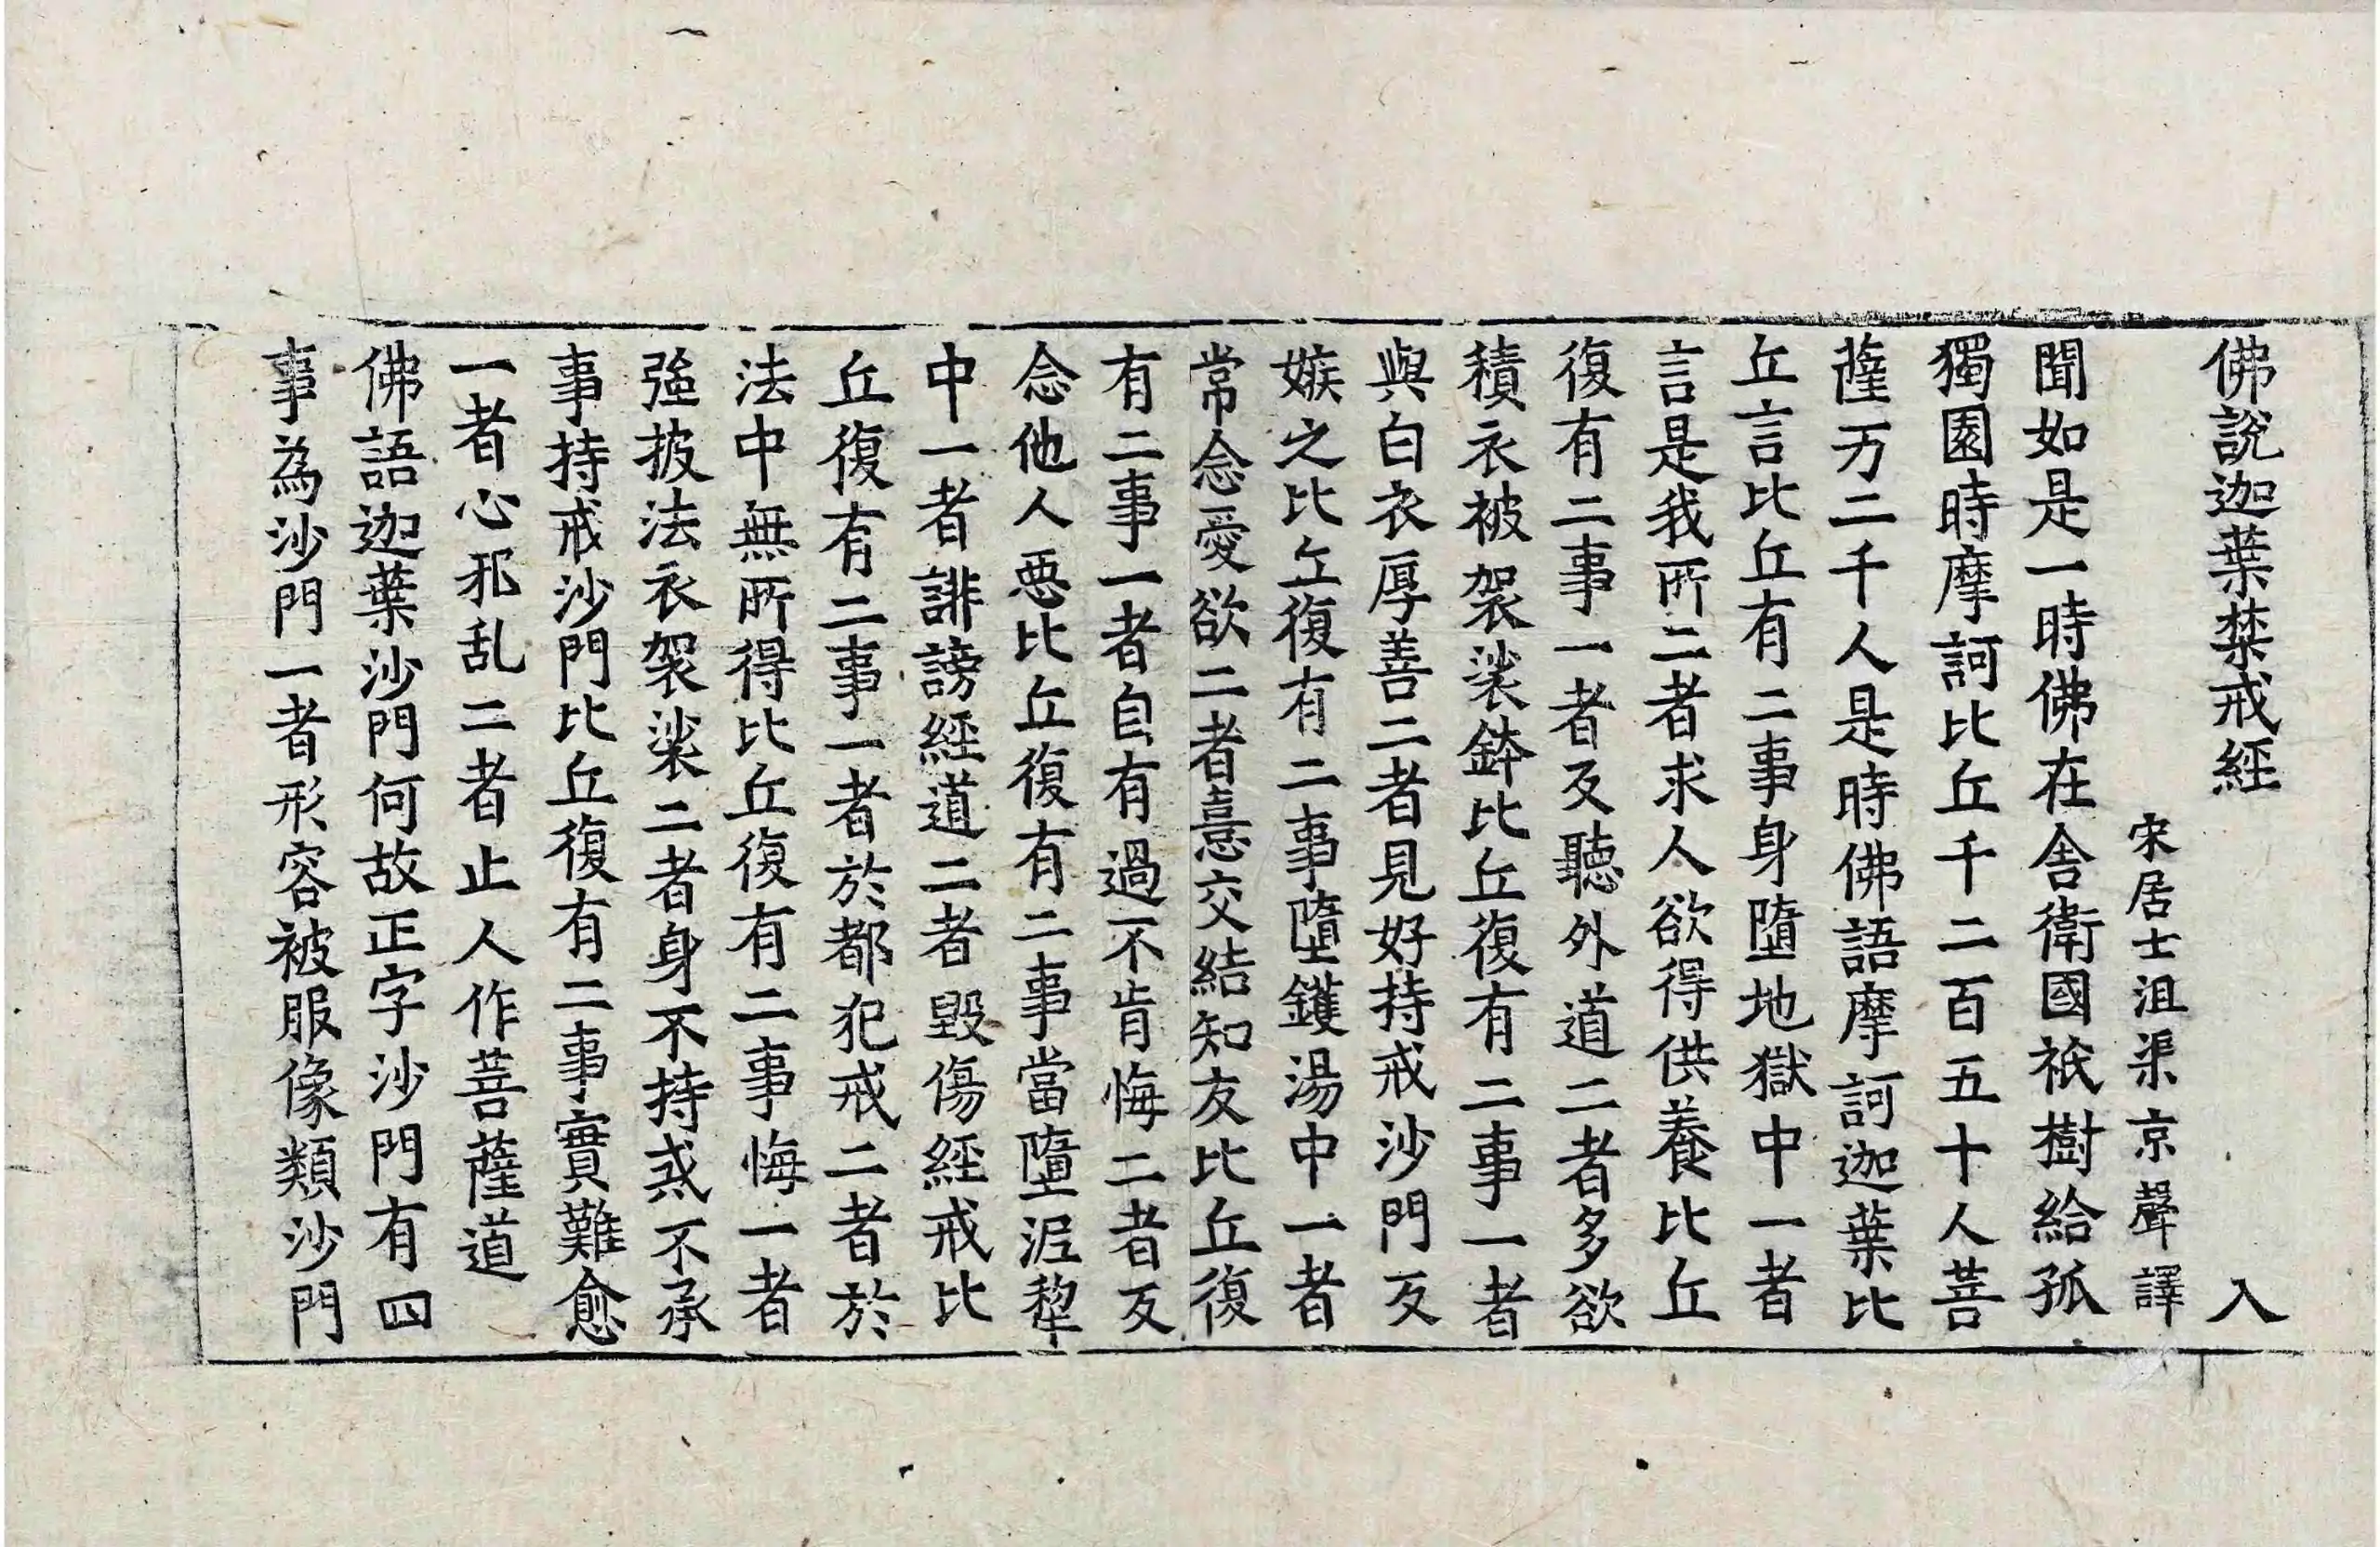 佛說迦葉禁戒經 入
宋居士沮渠京聲譯
聞如是一時佛在舍衛國祇樹給孤
獨園時摩訶比丘千二百五十人菩
薩万二千人是時佛語摩訶迦葉比
丘言比丘有二事身墮地獄中一者
言是我所二者求人欲得供養比丘
復有二事一者反聽外道二者多欲
積衣被袈裟鉢比丘復有二事一者
與白衣厚善二者見好持戒沙門反
嫉之比丘復有二事墮鑊湯中一者
常念愛欲二者憙交結知友比丘復
有二事一者自有過不肯悔二者反
念他人惡比丘復有二事當墮泥犂
中一者誹謗經道二者毀傷經戒比
丘復有二事一者於都犯戒二者於
法中無所得比丘復有二事悔一者
強披法衣袈裟二者身不持惑不承
事持戒沙門比丘復有二事實難愈
一者心邪乱二者止人作菩薩道
佛語迦葉沙門何故正字沙門有四
事為沙門一者形容被服像類沙門